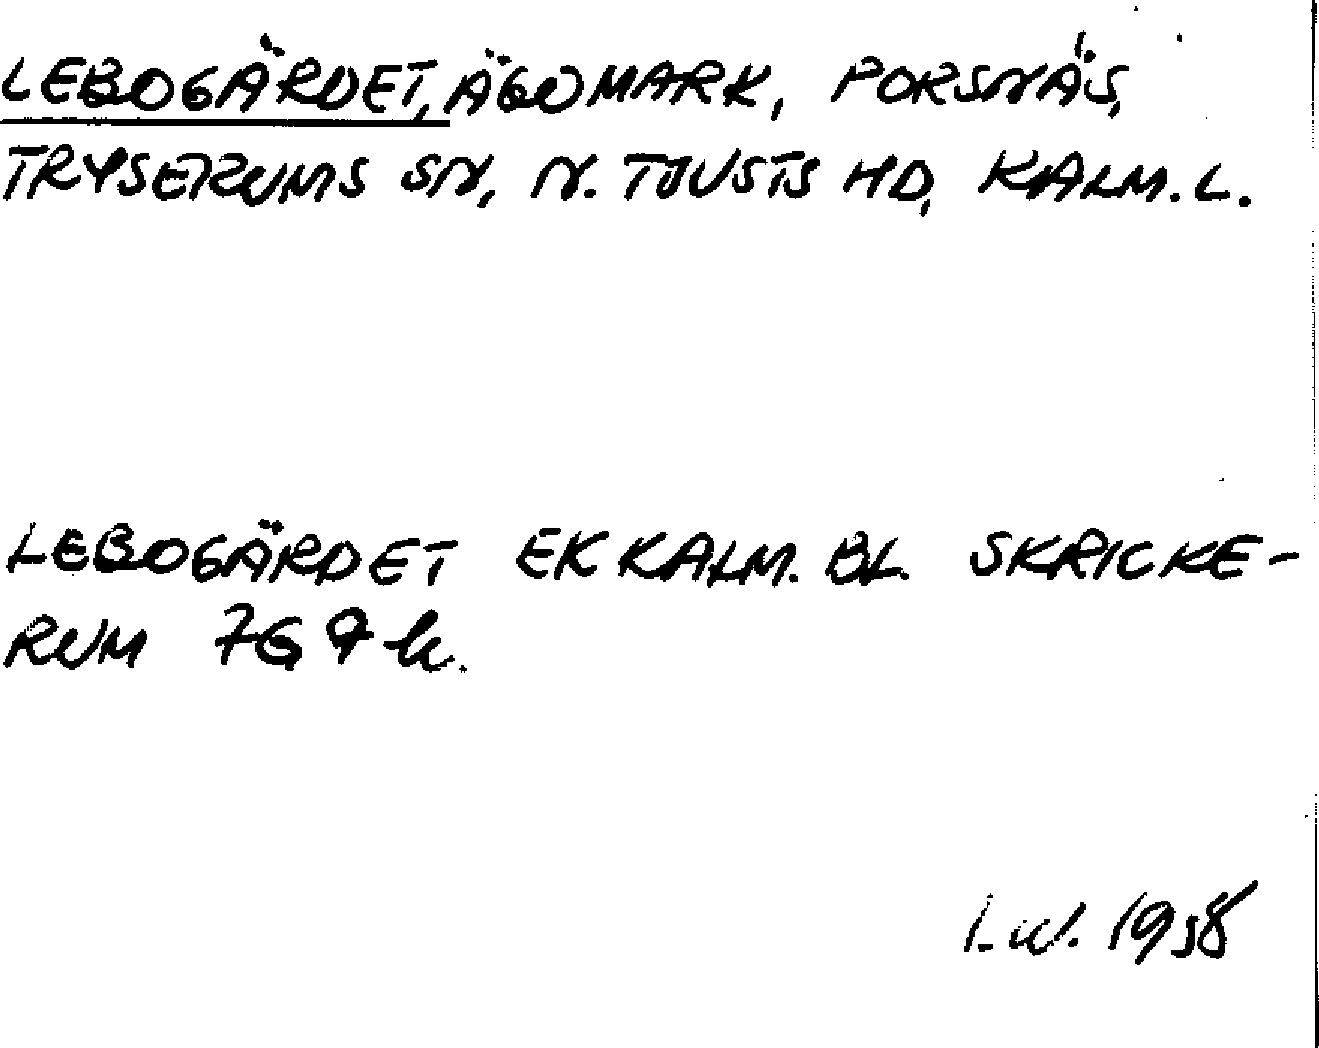 LEBOGÄRDET, ÄGOMARK, PORSNÄS,
TRYSERUMS SN, N. TJUSTS HD, KALM. L.
LEBOGÄRDET EK KALM. BL. SKRICKE-
RUM 769 k.
I.W. 1958